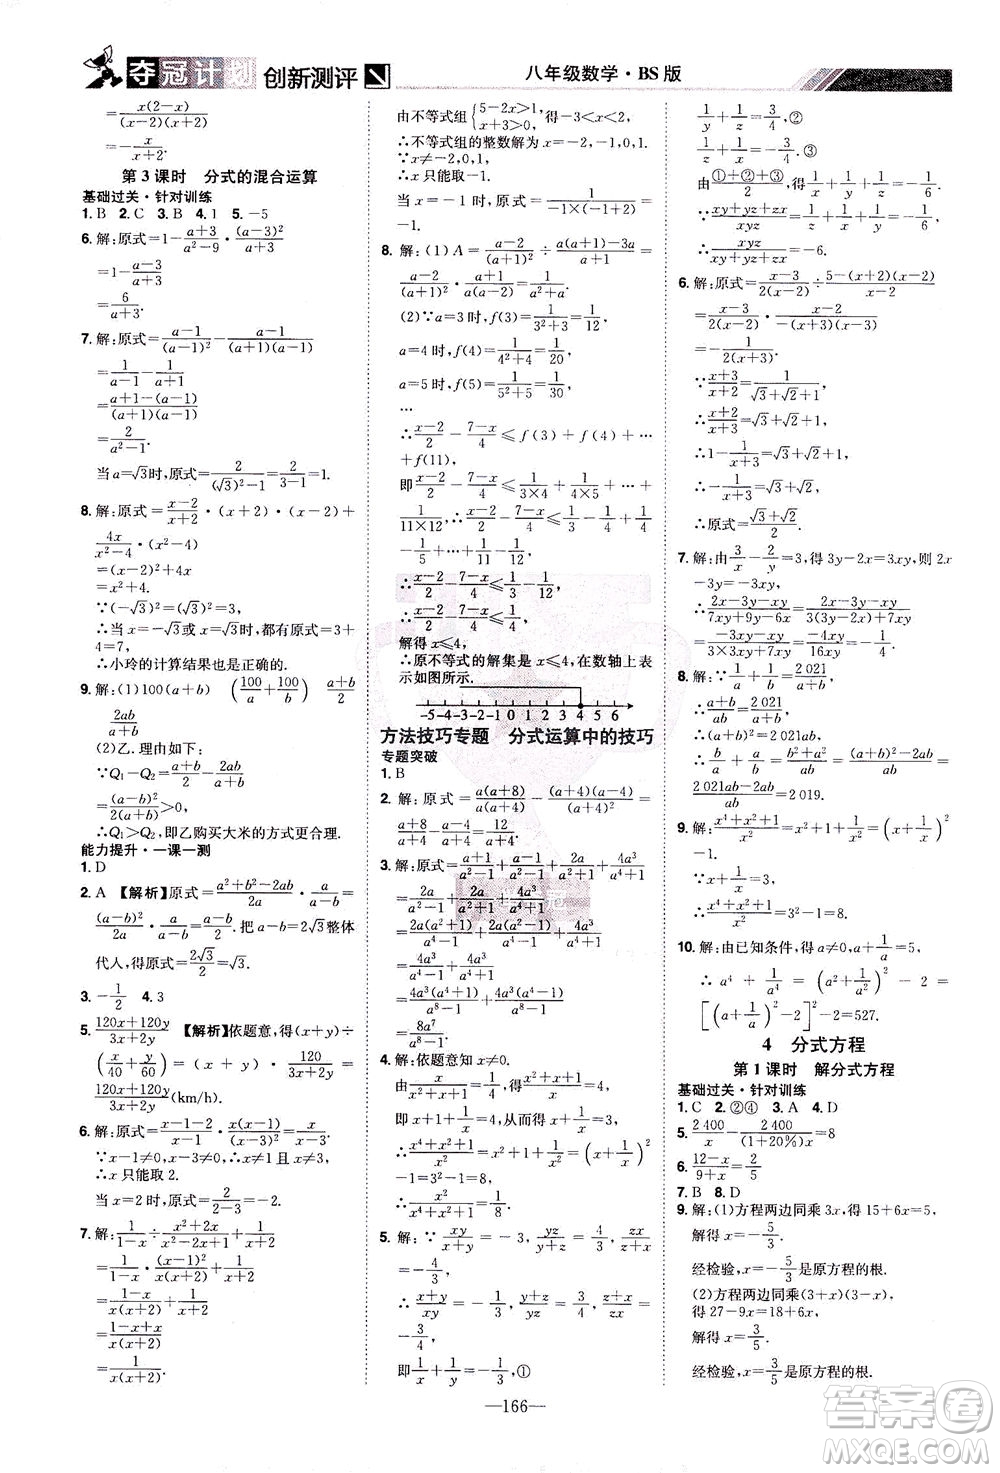 夺冠计划 创新测评
八年级数学·BS版
=x(2−x)/(x−2)(x+2)
=−x/(x+2).
第3课时 分式的混合运算
基础过关·针对训练
1. B 2. C 3. B 4. 1 5. −5
6. 解:原式=1−(a+3)/(a²−9)·(a−3)²/(a+3)²
=1−(a−3)/(a+3)
=6/(a+3).
7. 解:原式=(a−1)/(a−1)²−(a−1)/(a²−1)
=1/(a−1)−1/(a+1)
=[a+1−(a−1)]/(a+1)(a−1)
=2/(a²−1).
当a=√3时,原式=2/[(√3)²−1]=2/(3−1)=1.
8. 解:原式=(x−2)/(x+2)·(x+2)·(x−2)+
4x/(x²−4)·(x²−4)
=(x−2)²+4x
=x²+4.
∵(−√3)²=(√3)²=3,
∴当x=−√3或x=√3时,都有原式=3+
4=7,
∴小玲的计算结果也是正确的.
9. 解:(1)100(a+b) (100/a+100/b)
2ab/(a+b)
(2)乙.理由如下:
∵Q₁−Q₂=(a+b)/2−2ab/(a+b)
=(a−b)²/2(a+b)>0,
∴Q₁>Q₂,即乙购买大米的方式更合理.
能力提升·一课一测
1. D
2. A 【解析】原式=(a²+b²−2ab)/2a·a/(a−b)=
(a−b)²/2a·a/(a−b)=(a−b)/2.把a−b=2√3整体
代人,得原式=2√3/2=√3.
3. −1/2 4. 3
5. (120x+120y)/(3x+2y) 【解析】依题意,得(x+y)÷
(x/40+y/60)=(x+y)·120/(3x+2y)=
(120x+120y)/(3x+2y)(km/h).
6. 解:原式=(x−1−2)/(x−1)·x(x−1)/(x−3)²=x/(x−3).
∵x−1≠0,x−3≠0,x≠0且x为整数,
∴x只能取2.
当x=2时,原式=2/(2−3)=−2.
7. 解:1/(1−x)÷(x²+2x)/(x²−2x+1)+1/(x+2)
=1/(1−x)·(x−1)²/x(x+2)+1/(x+2)
=(1−x)/x(x+2)+1/(x+2)
=(1−x+x)/x(x+2)
=1/x(x+2).
由不等式组{5−2x>1, x+3>0,得−3<x<2,
∴不等式组的整数解为x=−2,−1,0,1.
∵x≠−2,0,1,
∴x只能取−1.
当x=−1时,原式=1/[−1×(−1+2)]=
−1.
8. 解:(1)A=(a−2)/(a+1)²÷[a(a+1)−3a]/(a+1)=
(a−2)/(a+1)²·(a+1)/a(a−2)=1/(a²+a).
(2)∵a=3时,f(3)=1/(3²+3)=1/12,
a=4时,f(4)=1/(4²+4)=1/20,
a=5时,f(5)=1/(5²+5)=1/30,
…
∴(x−2)/2−(7−x)/4≤f(3)+f(4)+…
+f(11),
即(x−2)/2−(7−x)/4≤1/(3×4)+1/(4×5)+…+
1/(11×12),∴(x−2)/2−(7−x)/4≤1/3−1/4+1/4
−1/5+…+1/11−1/12,
∴(x−2)/2−(7−x)/4≤1/3−1/12,
∴(x−2)/2−(7−x)/4≤1/4,
解得x≤4,
∴原不等式的解集是x≤4,在数轴上表
示如图所示.
-5-4-3-2-1 0 1 2 3 4 5 6
方法技巧专题 分式运算中的技巧
专题突破
1. B
2. 解:原式=a(a+8)/a(a+4)−(a+4)(a−4)/(a+4)²=
(a+8)/(a+4)−(a−4)/(a+4)=12/(a+4).
3. 解:原式=(a+1)/(a²−1)+(a−1)/(a²−1)+2a/(a²+1)+4a³/(a⁴+1)
=2a/(a²−1)+2a/(a²+1)+4a³/(a⁴+1)
=2a(a²+1)/(a⁴−1)+2a(a²−1)/(a⁴−1)+4a³/(a⁴+1)
=4a³/(a⁴−1)+4a³/(a⁴+1)
=4a³(a⁴+1)/(a⁸−1)+4a³(a⁴−1)/(a⁸−1)
=8a⁷/(a⁸−1).
4. 解:依题意知x≠0.
由x/(x²+x+1)=1/4,得(x²+x+1)/x=4,
即x+1+1/x=4,∴x+1/x=3.
∴(x⁴+x²+1)/x²=x²+1+1/x²=(x+1/x)²
−1=3²−1=8,
∴x²/(x⁴+x²+1)=1/8.
5. 解:∵xy/(x+y)=−3,yz/(y+z)=4/3,zx/(z+x)=
−4/3,
∴(x+y)/xy=−1/3,(y+z)/yz=3/4,(z+x)/zx=
−3/4,
即1/x+1/y=−1/3,①
1/y+1/z=3/4,②
1/z+1/x=−3/4.③
由(①+②+③)/2,得1/x+1/y+1/z=−1/6,
∴(xy+yz+zx)/xyz=1/x+1/y+1/z=−1/6,
∴xyz/(xy+yz+zx)=−6.
6. 解:原式=(x−3)/2(x−2)÷[5−(x+2)(x−2)]/(x−2)
=(x−3)/2(x−2)·(x−2)/[−(x+3)(x−3)]
=−1/2(x+3).
∵(x+3)/(x+2)=1/(√3+√2+1),
∴(x+2)/(x+3)=√3+√2+1,
∴1−1/(x+3)=√3+√2+1,
∴−1/(x+3)=√3+√2,
∴原式=(√3+√2)/2.
7. 解:由3/x−3/y=3,得3y−3x=3xy,则2x
−3y=−3xy,
∴(2x−3y−xy)/(7xy+9y−6x)=[(2x−3y)−xy]/[7xy−3(2x−3y)]
=(−3xy−xy)/(3×3xy+7xy)=−4xy/16xy=−1/4.
8. 解:∵1/a+1/b=2 021/(a+b),
∴(a+b)/ab=2 021/(a+b),
∴(a+b)²=2 021ab,
∴b/a+a/b=(a²+b²)/ab=[(a+b)²−2ab]/ab=
(2 021ab−2ab)/ab=2 019.
10. 解:由已知条件,得a≠0,a+1/a=5,
∴a⁴+1/a⁴=(a²+1/a²)²−2=
[(a+1/a)²−2]²−2=527.
4 分式方程
第1课时 解分式方程
基础过关·针对训练
1. C 2. ②④ 3. A 4. D
5. 2 400/x−2 400/(1+20%)x=8
6. (12−x)/(9+x)=2/5
7. B 8. D
9. 解:(1)方程两边同乘3x,得15+6x=5,
解得x=−5/3.
经检验,x=−5/3是原方程的根.
(2)方程两边同乘(3+x)(3−x),
得27−9x=18+6x,
解得x=3/5.
经检验,x=3/5是原方程的根.
—166—
答案圈
MXQE.COM